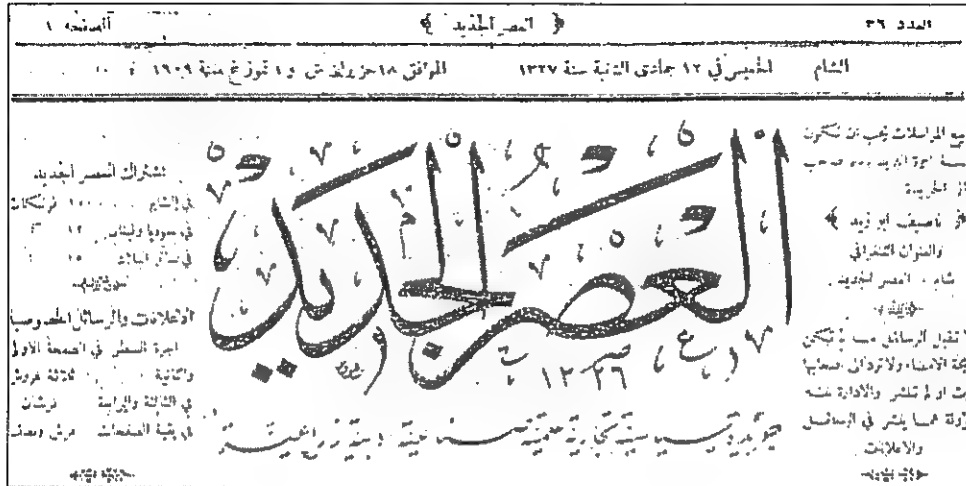 العدد ٣٦
﴿ العصر الجديد ﴾
الصفحة ١
الشام الخميس في ١٢ جمادى الثانية سنة ١٣٢٧ الموافق ١٨ حزيران ش و ١ تموز غ سنة ١٩٠٩
جميع المراسلات يجب ان تكون
اجرة البريد صاحب
الجريدة
﴿ ناصيف ابو زيد ﴾
والعنوان التلغرافي
شام . العصر الجديد
لا تقبل الرسائل ما لم تكن
الامضاء ولا ترد الى اصحابها
او لم تنشر والادارة غير
عما ينشر في الرسائل
والاعلانات
العصر الجديد
١٣٢٦
جريدة سياسية تجارية علمية ادبية زراعية
اشتراك العصر الجديد
في الشام ١٠ فرنكات
في سوريا ولبنان ١٢
في سائر البلاد ١٥
الاعلانات والرسائل الخصوصية
اجرة السطر في الصفحة الاولى
والثانية ثلاثة غروش
في الثالثة والرابعة غرشان
في بقية الصفحات غرش ونصف